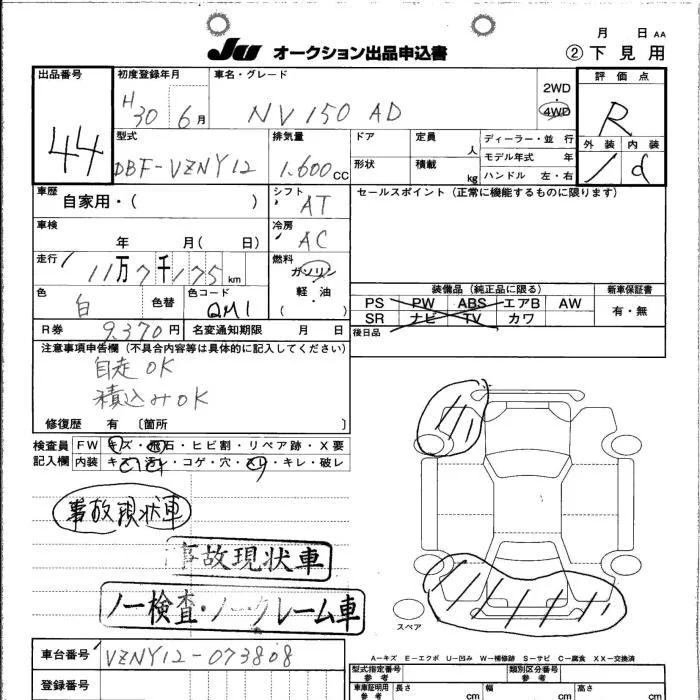 月 日 AA
JU オークション出品申込書 ②下見用
出品番号 初度登録年月 車名・グレード 評価点
44 H30 6月 NV150 AD 2WD・4WD R
型式 排気量 ドア 定員 人 ディーラー・並行 外装 内装
DBF-VZNY12 1.600cc 形状 積載 kg モデル年式 年 ハンドル 左・右 1 d
車歴 自家用・( ) シフト AT セールスポイント (正常に機能するものに限ります)
車検 年 月( 日) 冷房 AC
走行 11万7千175km 燃料 ガソリン 軽・油 ( )
色 白 色替 色コード QM1
装備品 (純正品に限る) 新車保証書
PS PW ABS エアB AW 有・無
SR ナビ TV カワ
R券 9,370円 名変通知期限 月 日 後日品
注意事項申告欄 (不具合内容等は具体的に記入してください)
自走OK
積込みOK
修復歴 有 〔箇所 〕
検査員 FW キズ・飛石・ヒビ割・リペア跡・X要
記入欄 内装 キズ・汚レ・コゲ・穴・スレ・キレ・破レ
事故現状車
事故現状車
ノー検査・ノークレーム車
スペア
車台番号 VZNY12-073808
A−キズ E−エクボ U−凹み W−補修跡 S−サビ C−腐食 XX−交換済
登録番号 型式指定番号 参考 類別区分番号 参考
車庫証明用 参考 長さ cm 幅 cm 高さ cm